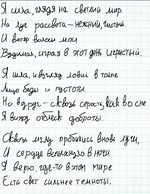 Я шла, глядя на светлый мир
На цвет рассвета – нежный, чистый.
И ветер волосы мои
Вздымал, играя в этот день игристый.
Я шла, и взгляд ловил в толпе
Лица беды и пустоты
Но вдруг – сквозь серость, как во сне
Я вижу облик доброты.
Сквозь мглу пробились вновь лучи,
И сердце вспыхнуло в ночи
Я верю, где-то в этом мире
Есть свет сильнее темноты.